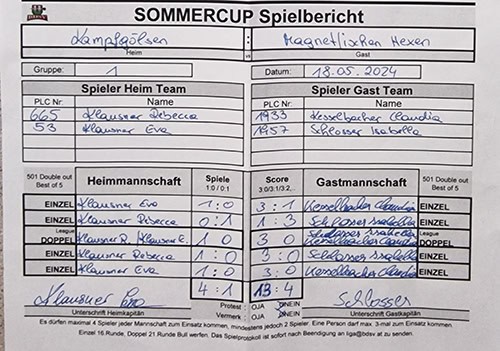 SOMMERCUP Spielbericht
Kampfgölsen : Magnetischen Hexen
Heim Gast
Gruppe: 1 Datum: 18.05.2024
Spieler Heim Team Spieler Gast Team
PLC Nr: Name PLC Nr: Name
665 Klausner Rebecca 1933 Kesselbacher Claudia
53 Klausner Eva 1957 Schlosser Isabella
501 Double out Best of 5 Heimmannschaft Spiele 1:0 / 0:1 Score 3:0/3.1/3.2,... Gastmannschaft 501 Double out Best of 5
EINZEL Klausner Eva 1:0 3:1 Kesselbacher Claudia EINZEL
EINZEL Klausner Rebecca 0:1 1:3 Schlosser Isabella EINZEL
League DOPPEL Klausner R. Klausner E. 1 0 3 0 Schlosser Isabella Kesselbacher Claudia League DOPPEL
EINZEL Klausner Rebecca 1 0 3:0 Schlosser Isabella EINZEL
EINZEL Klausner Eva 1 0 3:0 Kesselbacher Claudia EINZEL
4:1 13:4
Klausner Eva Schlosser
Protest: OJA NEIN
Unterschrift Heimkapitän Vermerk: OJA NEIN Unterschrift Gastkapitän
Es dürfen maximal 4 Spieler jeder Mannschaft zum Einsatz kommen, mindestens jedoch 2 Spieler. Eine Person darf max. 3-mal zum Einsatz kommen.
Einzel 16.Runde. Doppel 21.Runde Bull werfen. Das Spielprotokoll ist sofort nach Beendigung an liga@bdsv.at zu senden.